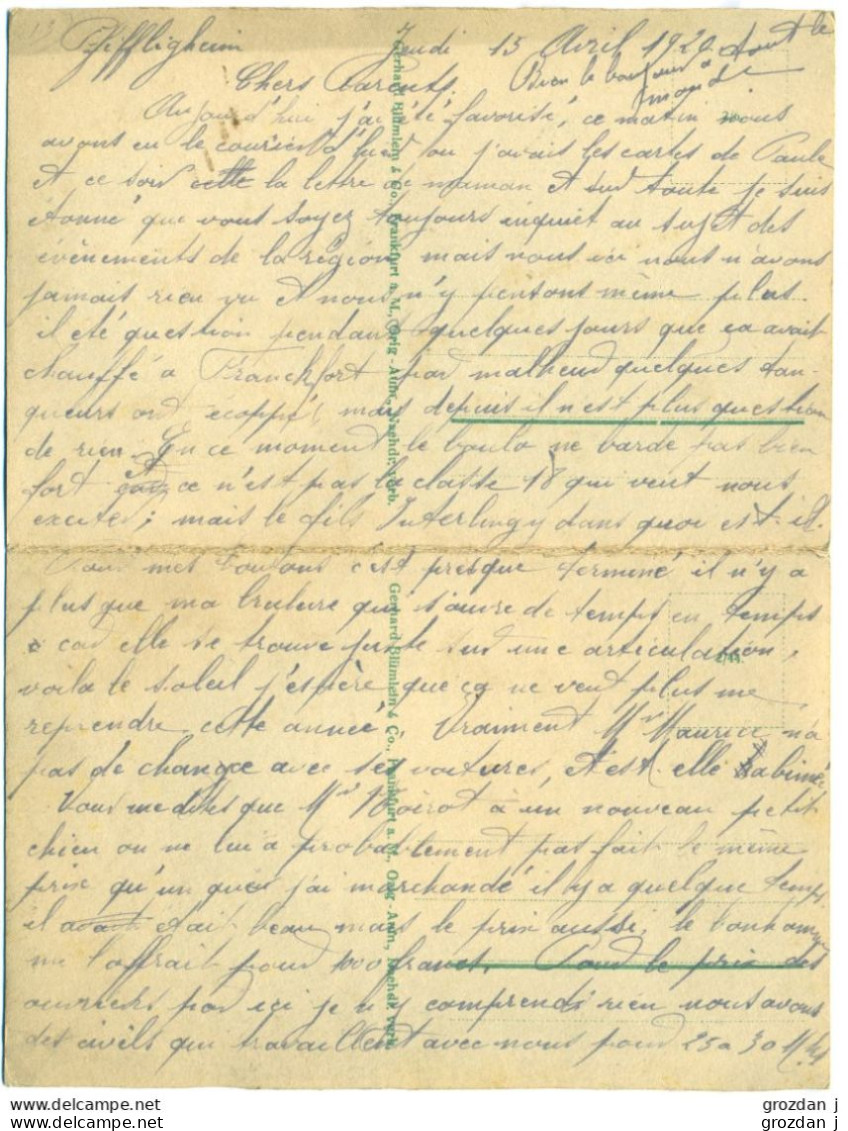 Pfiffligheim Jeudi 15 Avril 1920
Bien le bonjour a tout le
monde
Chers Parents,
Aujourd'hui j'ai été favorisé, ce matin nous
avons eu le courier d'hier ou j'avais les cartes de Paule
et ce soir la lettre de maman et sur toute je suis
étonné que vous soyez toujours inquiet au sujet des
évènements de la région, mais nous ici nous n'avons
jamais rien vu et nous n'y pensons même plus.
il été question pendant quelques jours que ça avait
chauffé a Franckfort par malheur quelques tan-
queurs ont écoppé, mais depuis il n'est plus question
de rien. En ce moment le boulo ne barde pas bien
fort et ce n'est pas la classe 18 qui vient nous
exciter; mais le fils dans quoi est-il.
Pour mes boutons c'est presque terminé il n'y a
plus que ma brulure qui s'ouvre de temps en temps
car elle se trouve juste sur une articulation,
voila le soleil j'espère que ça ne veut plus me
reprendre cette année. Vraiment Mr Maurice n'a
pas de chance avec ses voitures, est elle abimé
Vous me dites que Mr Voirot à un nouveau petit
chien on ne lui a probablement pas fait le même
prix qu'un que j'ai marchandé il y a quelque temps
il était beau mais le prix aussi, le bonhomme
me l'offrait pour 1000 francs. Pour le prix des
ouvriers par ici je n'y comprends rien nous avons
des civils qui travaillent avec nous pour 25 a 30 Mks
Gerhard Blümlein & Co., Frankfurt a. M., Orig.-Aufn., Nachdr. verb.
Gerhard Blümlein & Co., Frankfurt a. M., Orig.-Aufn., Nachdr. verb.
grozdan j
grozdan j